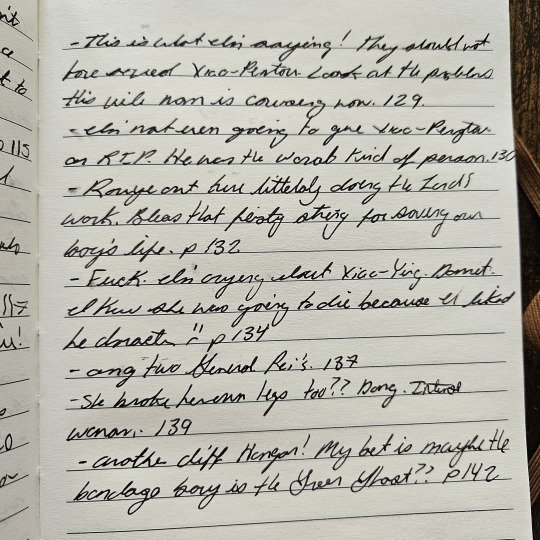 - This is what I'm saying! They should not
have saved Xiao-Pingtou. Look at the problems
this vile man is causing now. 129.
- I'm not even going to give Xiao-Pengtou
an R.I.P. He was the worst kind of person. 130
- Rouye out here litterally doing the Lord's
work. Bless that feisty string for saving our
boy's life. p 132
- Fuck. I'm crying about Xiao-Ying. Damnit.
I knew she was going to die because I liked
he character :( p 134
- omg two General Pei's. 137
- She broke her own legs too?? Dang. Intense
woman. 139
- another cliff Hanger! My bet is maybe the
bandage boy is the Green Ghost?? p 142
115
to